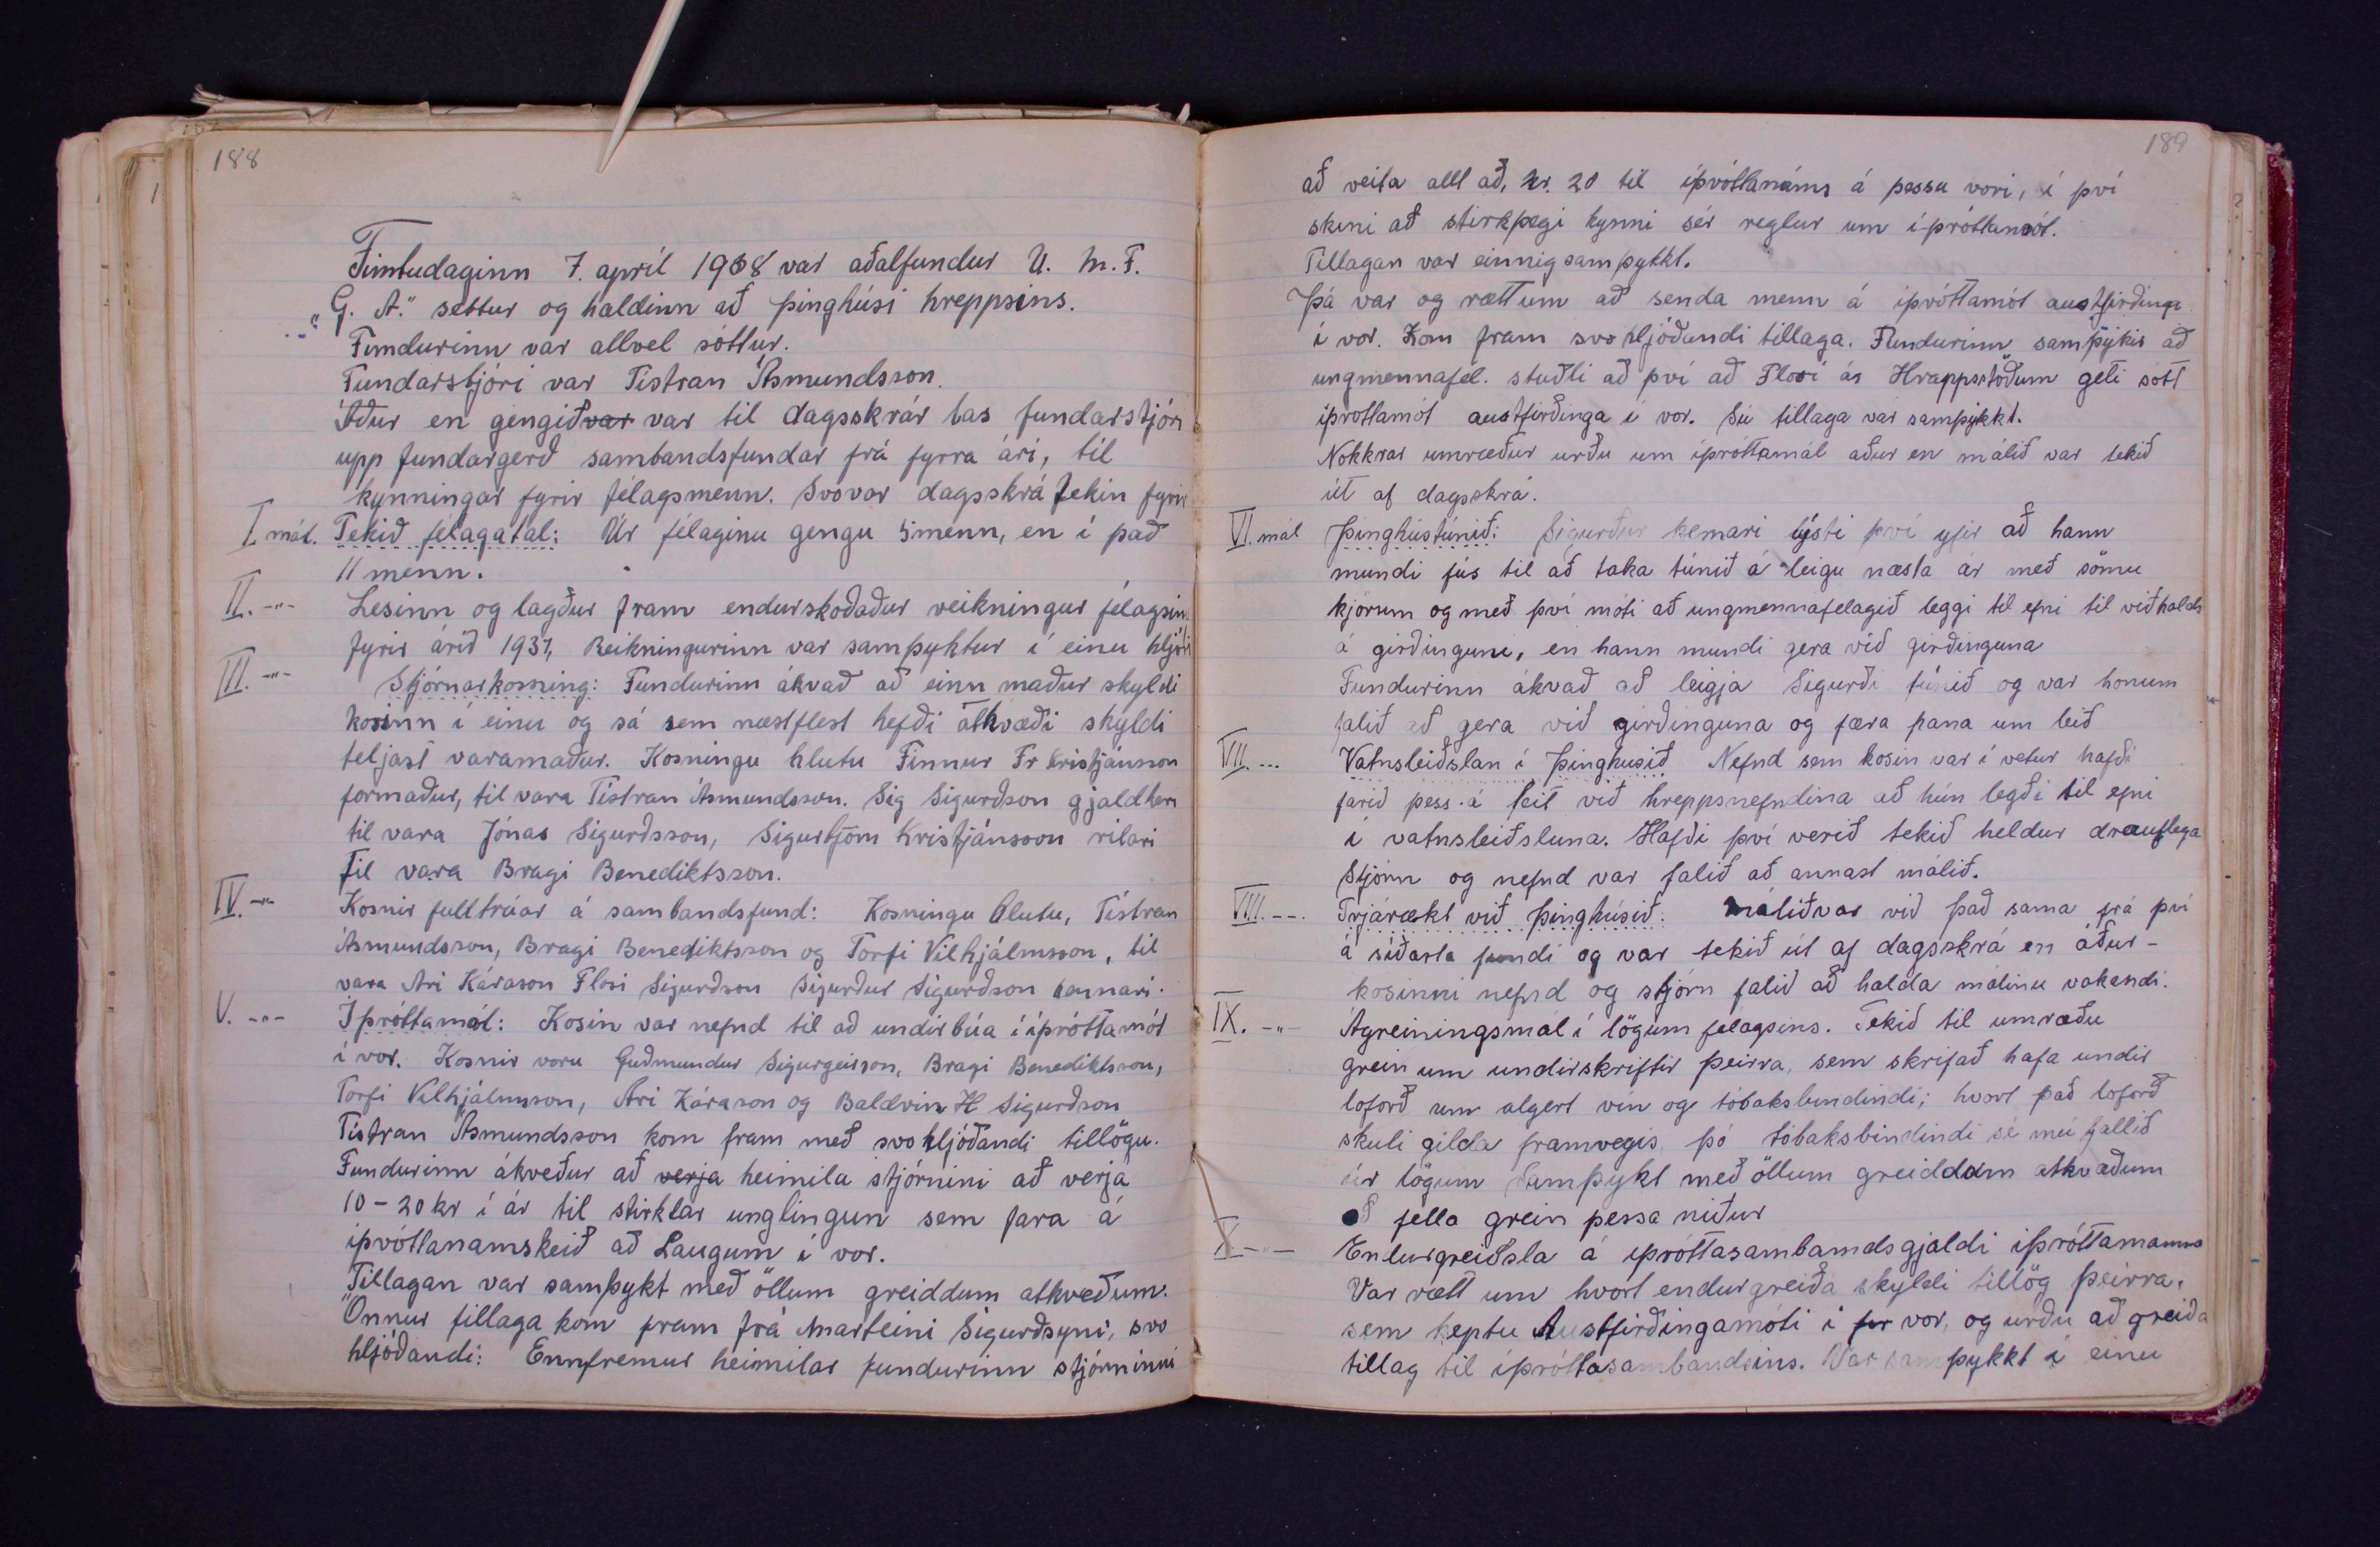 188
Fimtudaginn 7. apríl 1938 var aðalfundur U. M. F.
"G. A." settur og haldinn að þinghúsi hreppsins.
Fundurinn var allvel sóttur.
Fundarstjóri var Tistran Ásmundsson.
Áður en gengið var var til dagsskrár las fundarstjóri
upp fundargerð sambandsfundar frá fyrra ári, til
kynningar fyrir félagsmenn. Svo var dagsskrá tekin fyrir
I. mál. Tekið félagatal: Úr félaginu gengu 5 menn, en í það
11 menn.
II. -"- Lesinn og lagður fram endurskoðaður reikningur félagsin
fyrir árið 1937, Reikningurinn var samþyktur í einu hljóði
III. -"- Stjórnarkosning: Fundurinn ákvað að einn maður skyldi
kosinn í einu og sá sem næstflest hefði atkvæði skyldi
teljast varamaður. Kosningu hlutu Finnur Fr Kristjánsson
formaður, til vara Tistran Ásmundsson. Sig Sigurðson gjaldkeri
til vara Jónas Sigurðsson, Sigurbjörn Kristjánsson ritari
til vara Bragi Benediktsson.
IV. -"- Kosnir fulltrúar á sambandsfund: Kosningu hlutu, Tistran
Ásmundsson, Bragi Benediktsson og Torfi Vilhjálmsson, til
vara Ari Kárason Flosi Sigurðson Sigurður Sigurðson kennari.
V. -"- Íþróttamál: Kosin var nefnd til að undirbúa í íþróttamót
í vor. Kosnir voru Guðmundur Sigurgeirson, Bragi Benediktsson,
Torfi Vilhjálmsson, Ari Kárason og Baldvin H Sigurðson
Tistran Ásmundsson kom fram með svohljóðandi tillögu.
Fundurinn ákveður að verja heimila stjórnini að verja
10-20 kr í ár til stirktar unglingun sem fara á
íþróttanamskeið að Laugum í vor.
Tillagan var samþykt með öllum greiddum atkveðum.
Önnur tillaga kom fram frá Marteini Sigurðsyni, svo
hljóðandi: Ennfremur heimilar fundurinn stjórninni
189
að veita allt að, kr. 20 til íþróttanáms á þessu vori, í því
skini að stirkþegi kynni sér reglur um íþróttamót.
Tillagan var einnig samþykkt.
Þá var og rætt um að senda menn á íþróttamót austfirðinga
í vor. Kom fram svohljóðandi tillaga. Fundurinn samþykir að
ungmennafél. stuðli að því að Flosi ás Hrappstöðum geti sótt
íþróttamót austfirðinga í vor. Sú tillaga var samþykkt.
Nokkrar umræður urðu um íþróttamál aður en málið var tekið
út af dagsskrá.
VI. mál Þinghústúnið: Sigurður kenari lýsti því yfir að hann
mundi fús til að taka túnið á leigu næsta ár með sömu
kjörum og með því móti að ungmennafelagið leggi til efni til viðhalds
á girðingune, en hann mundi gera við girðinguna
Fundurinn ákvað að leigja Sigurði túnið og var honum
falið að gera við girðinguna og færa hana um leið
VII. -"- Vatnsleiðslan í Þinghusið Nefnd sem kosin var í vetur hafði
farið þess á leit við hreppsnefndina að hún legði til efni
í vatnsleiðsluna. Hafði því verið tekið heldur drauflega
Stjórn og nefnd var falið að annast málið.
VIII. -"- Trjárækt við Þinghúsið: Málið var við það sama frá því
á síðasta fundi og var tekið út af dagsskrá en áður-
kosinni nefnd og stjórn falið að halda málinu vakandi.
IX. -"- Ágreiningsmál í lögum felagsins. Tekið til umræðu
grein um undirskriftir þeirra, sem skrifað hafa undir
loforð um algert vín og tóbaksbindindi; hvort það loforð
skuli gilda framvegis, þó tóbaksbindindi sé nú fallið
úr lögum Samþykt með öllum greiddum atkvæðum
að fella grein þessa niður
X -"- Endurgreiðsla á iþróttasambandsgjaldi iþróttamanna
Var rætt um hvort endurgreiða skyldi tillög þeirra.
sem keptu Austfirðingamóti í fyr vor, og urðu að greiða
tillag til íþróttasambandsins. Var samþykkt í einu